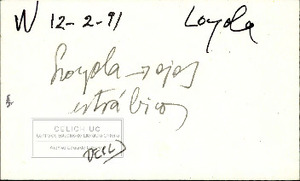 W 12-2-91 Loyola
Loyola → ojos
estrábicos
CELICH UC